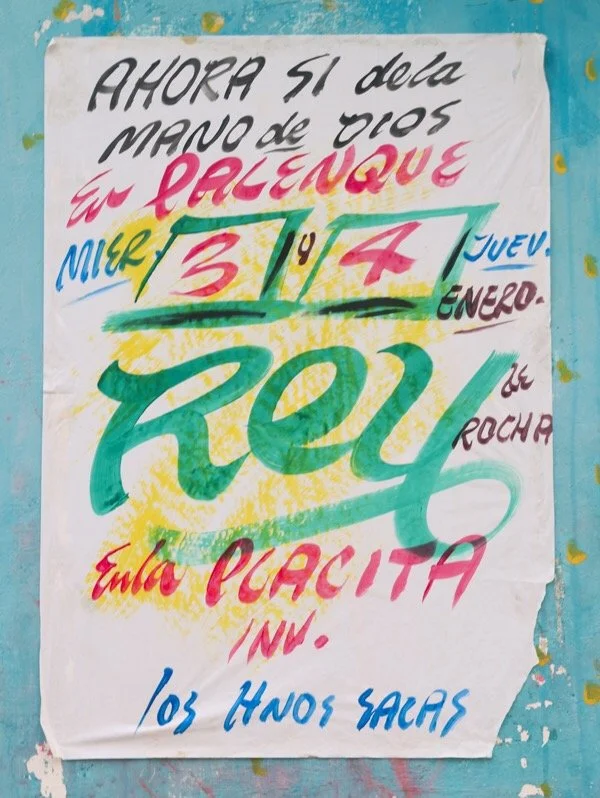 AHORA SI de la
MANO de DIOS
En PALENQUE
MIER. 3 y 4 JUEV.
ENERO.
Rey de
ROCHA
En la PLACITA
INV.
los HNOS SALAS